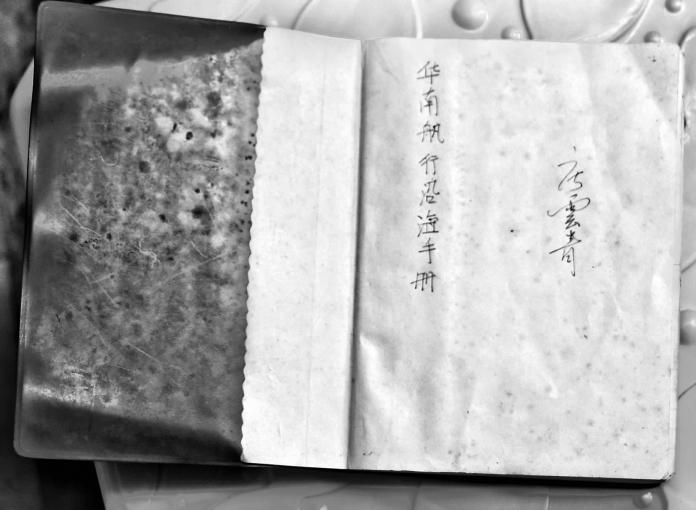 雲青
华南航行沿海手册